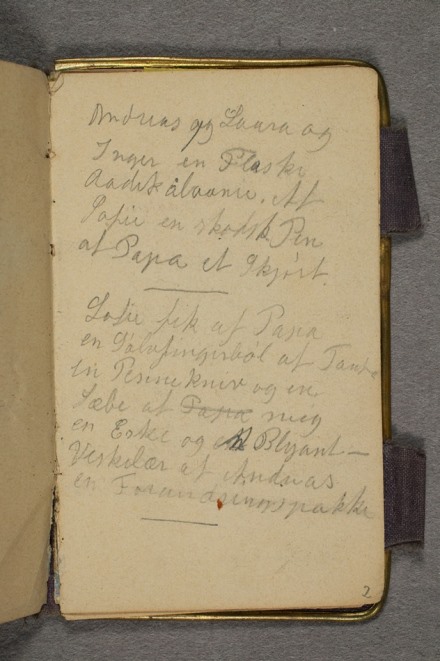 Andreas og Laura og
Inger en Flaske
Aadikalvanne. Af
Sofie en skodsk Pen
af Papa et Skjört.
Sofie fik af Papa
en Sölvfingerböl af Tante
en Pennekniv og en
Sæbe af Papa meg
en Eske og et Blyant-
Viskelær af Andreas
en Foræringspakke
2